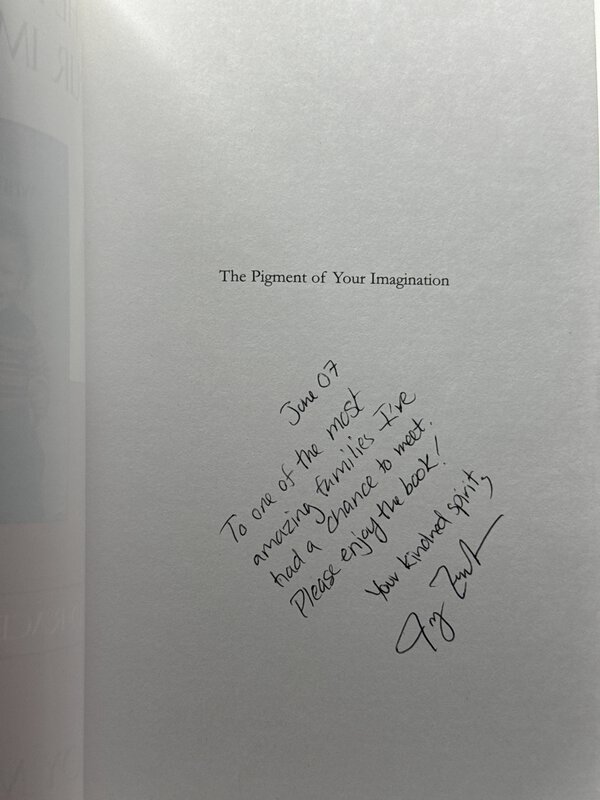 The Pigment of Your Imagination
June 07
To one of the most
amazing families I've
had a chance to meet.
Please enjoy the book!
Your kindred spirit,